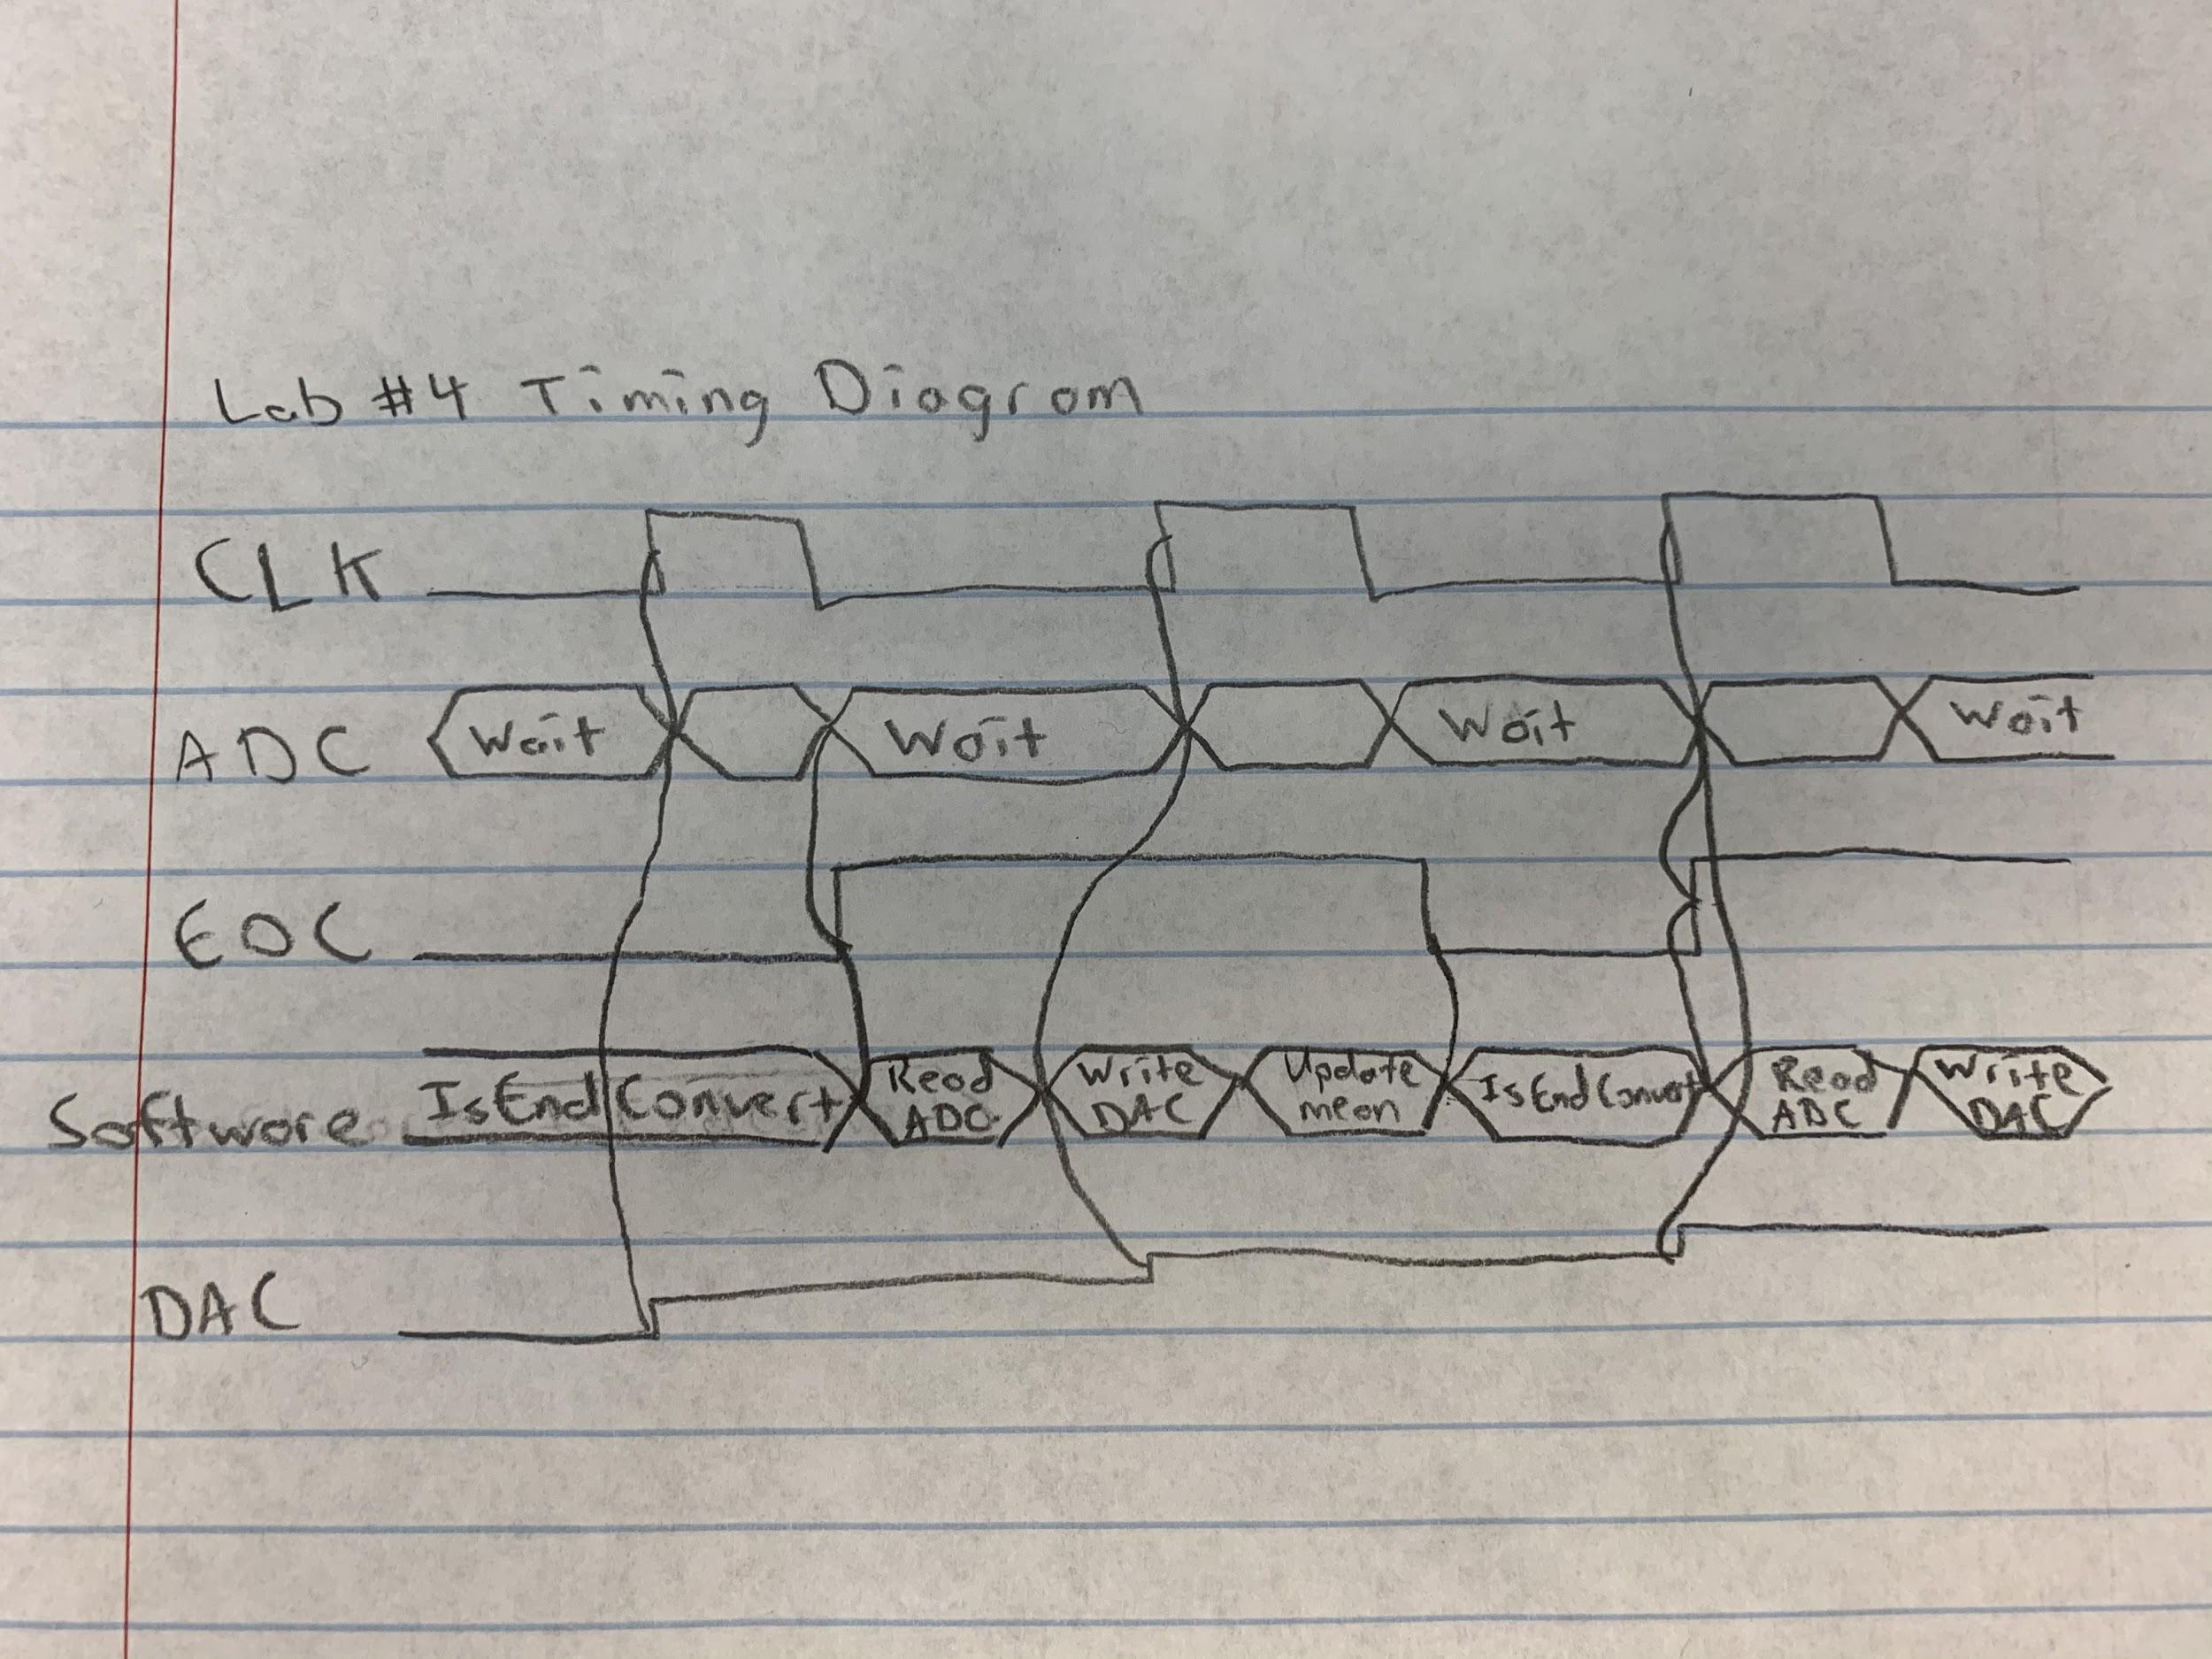 Lab #4 Timing Diagram
CLK
ADC Wait Wait Wait Wait
EOC
Software IsEndConvert Read ADC Write DAC Update mean IsEndConvert Read ADC Write DAC
DAC